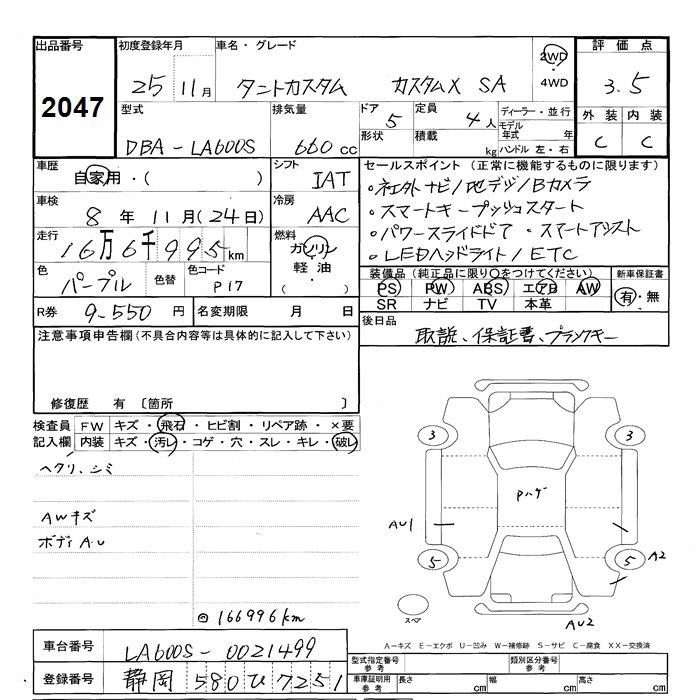 出品番号 初度登録年月 車名・グレード 2WD・4WD 評価点
2047 25 11月 タントカスタム カスタムX SA 3.5
型式 排気量 ドア 5 定員 4人 ディーラー・並行 外装 内装
DBA-LA600S 660cc 形状 積載 kg モデル年式 年 ハンドル 左・右 C C
車歴 自家用・( ) シフト IAT セールスポイント (正常に機能するものに限ります)
車検 8年 11月(24日) 冷房 AAC
・社外ナビ/地デジ/Bカメラ
・スマートキープッシュスタート
・パワースライドドア ・スマートアシスト
・LEDヘッドライト/ETC
走行 16万6千995km 燃料 ガソリン 軽油・( )
色 パープル 色替 色コード P17
装備品 (純正品に限り○をつけてください) 新車保証書
PS PW ABS エアB AW 有・無
SR ナビ TV 本革
R券 9-550円 名変期限 月 日
後日品 取説、保証書、ブランクキー
注意事項申告欄 (不具合内容等は具体的に記入して下さい)
修復歴 有 〔箇所 〕
検査員記入欄 FW キズ・飛石・ヒビ割・リペア跡・×要
内装 キズ・汚レ・コゲ・穴・スレ・キレ・破レ
ヘタリ、シミ
3 3
Pハゲ
AWキズ
ボディA.U
AU1
5 5 A2
スペア
AU2
166996km
A-キズ E-エクボ U-凹み W-補修跡 S-サビ C-腐食 XX-交換済
車台番号 LA600S-0021499
型式指定番号 参考 類別区分番号 参考
登録番号 静岡 580 ひ 7251
車庫証明用 参考 長さ cm 幅 cm 高さ cm